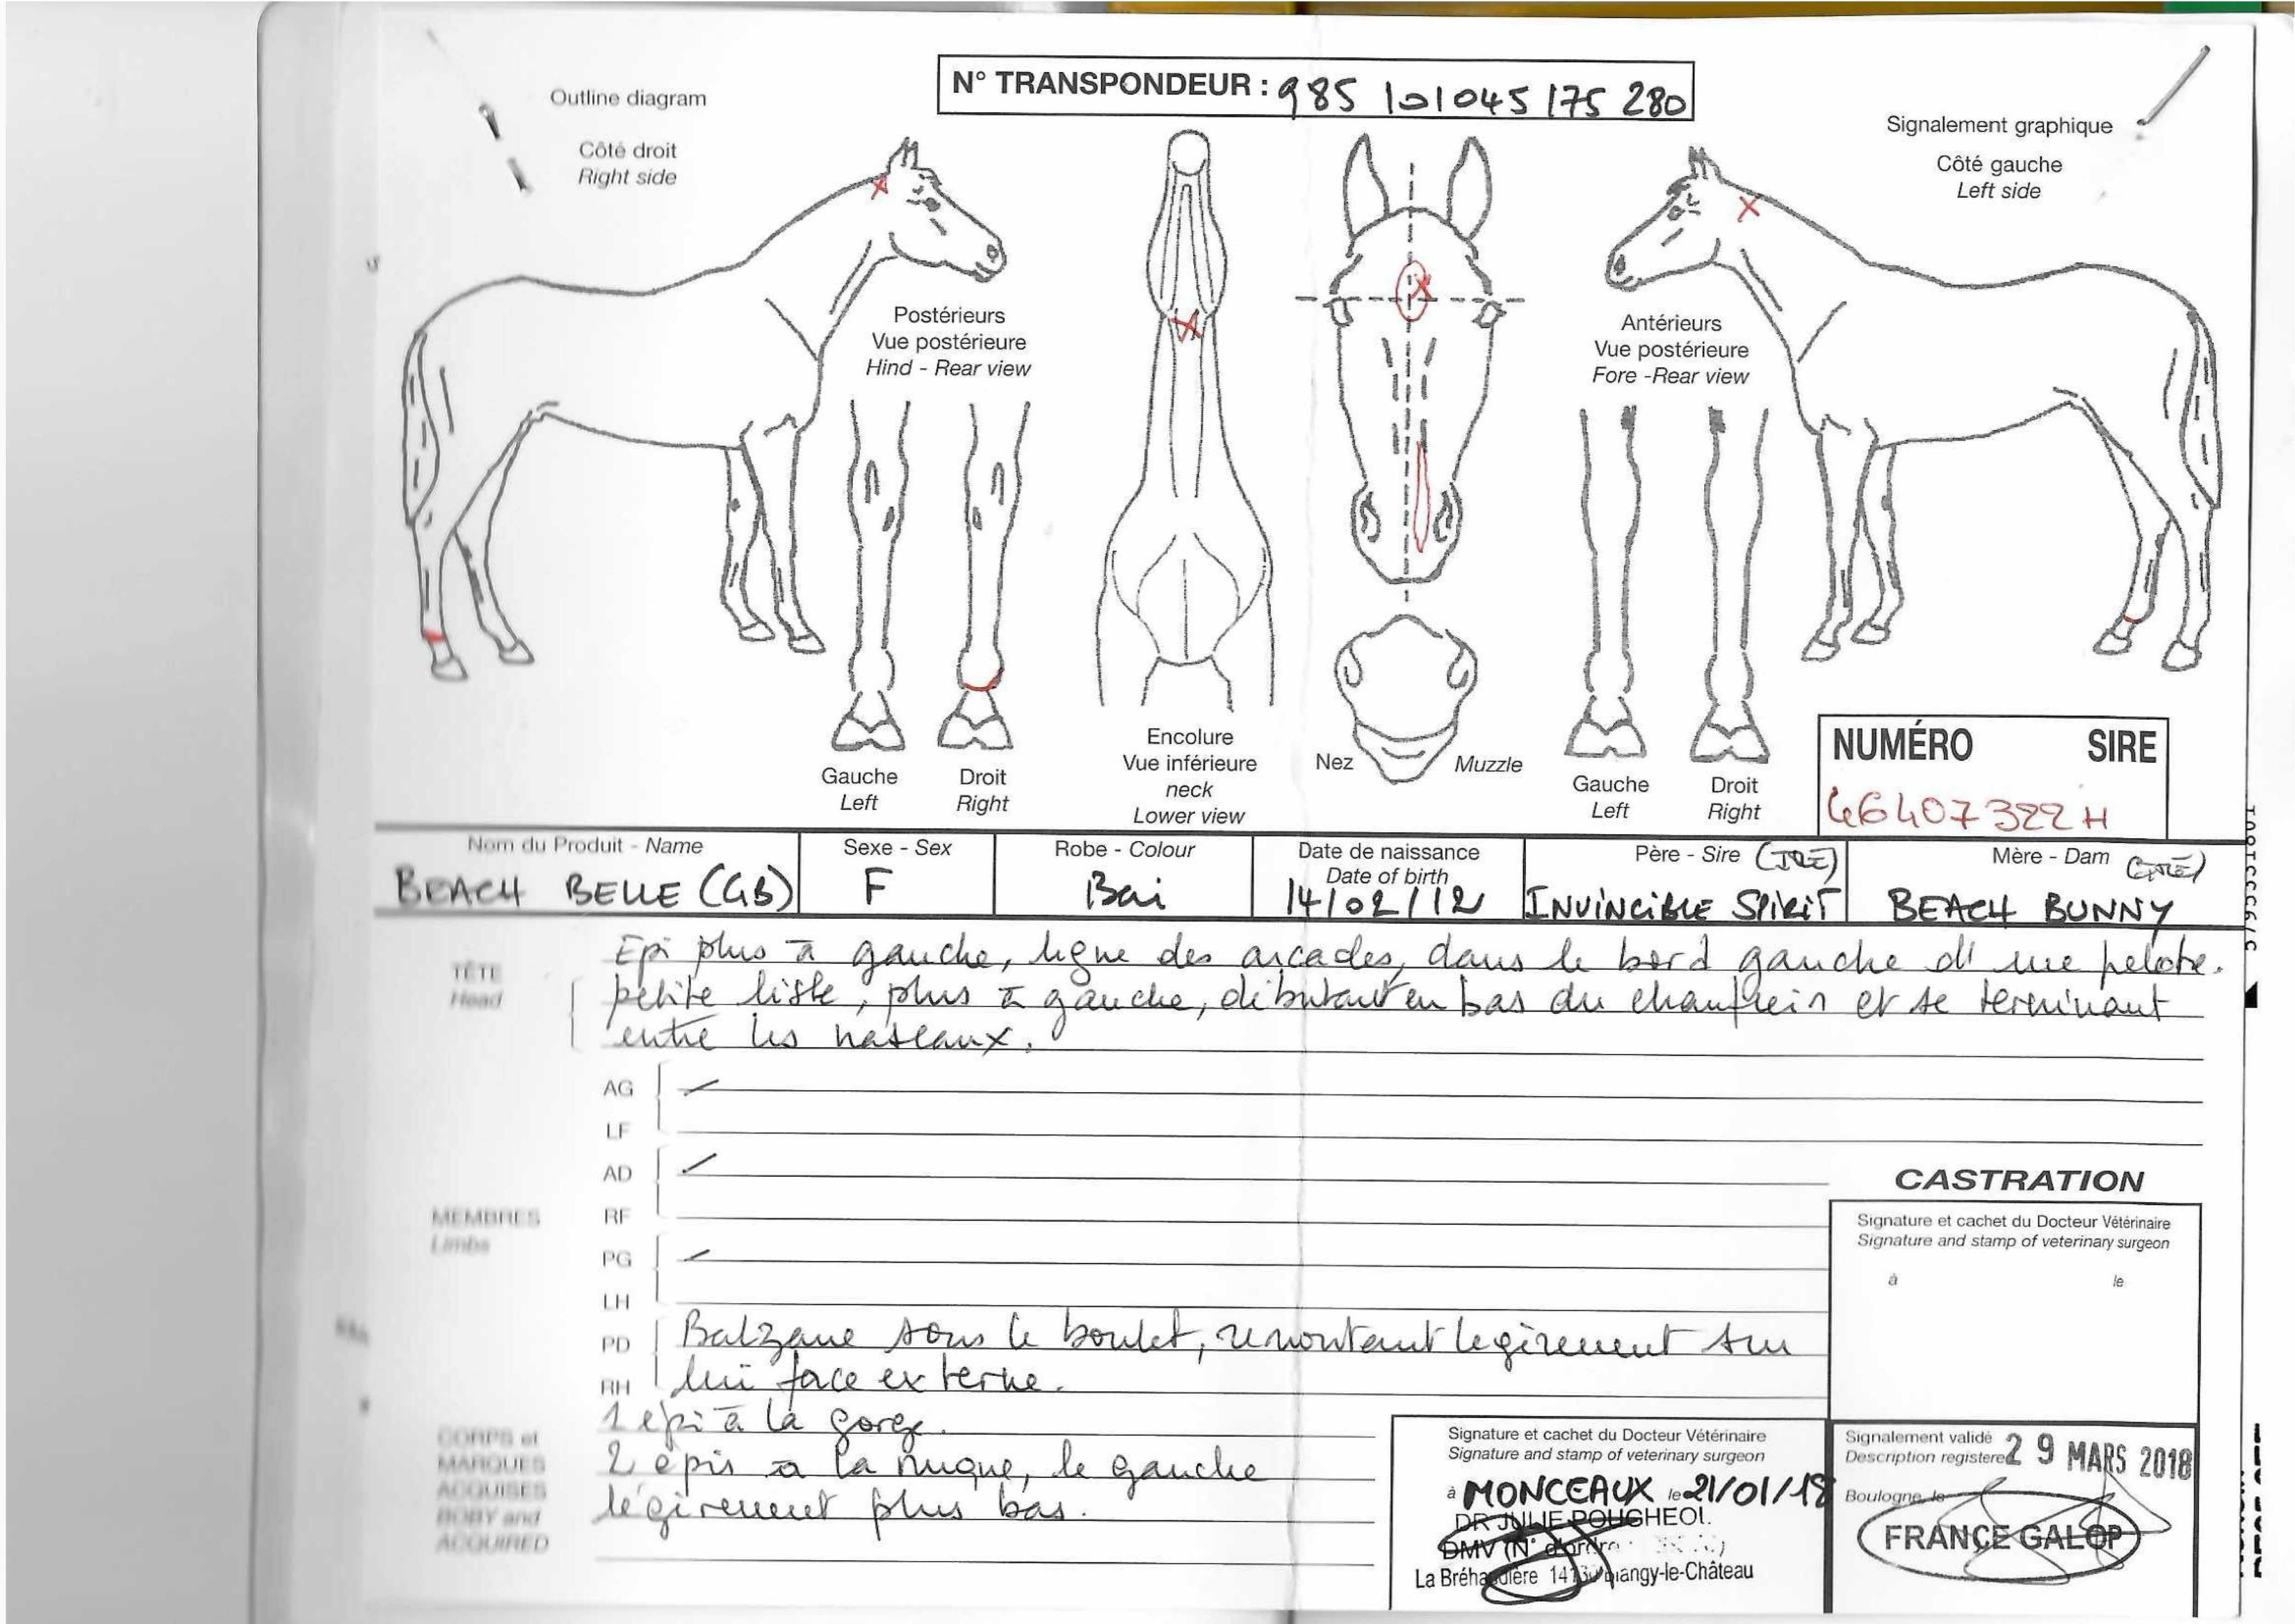 N° TRANSPONDEUR : 985 101045 175 280
Outline diagram
Côté droit
Right side
Signalement graphique
Côté gauche
Left side
Postérieurs
Vue postérieure
Hind - Rear view
Antérieurs
Vue postérieure
Fore -Rear view
Gauche
Left
Droit
Right
Encolure
Vue inférieure
neck
Lower view
Nez
Muzzle
Gauche
Left
Droit
Right
NUMÉRO SIRE
46407322H
Nom du Produit - Name
BEACH BELLE (GB)
Sexe - Sex
F
Robe - Colour
Bai
Date de naissance
Date of birth
14/02/12
Père - Sire (IRE)
INVINCIBLE SPIRIT
Mère - Dam (IRE)
BEACH BUNNY
TÊTE
Head
Epi plus à gauche, ligne des arcades, dans le bord gauche d'une pelote.
petite liste, plus à gauche, débutant en bas du chanfrein et se terminant
entre les naseaux.
MEMBRES
Limbs
AG
LF
AD
RF
PG
LH
PD
RH
Balzane sous le boulet, remontant légèrement sur
lui face externe.
CORPS et
MARQUES
ACQUISES
BOBY and
ACQUIRED
1 épi à la gorge.
2 épis à la nuque, le gauche
légèrement plus bas.
CASTRATION
Signature et cachet du Docteur Vétérinaire
Signature and stamp of veterinary surgeon
à le
Signature et cachet du Docteur Vétérinaire
Signature and stamp of veterinary surgeon
à MONCEAUX le 21/01/18
DR JULIE POUGHEOL
DMV (N° d'ordre :
La Bréhardière 14130 Blangy-le-Château
Signalement validé
Description registered
29 MARS 2018
Boulogne, le
FRANCE GALOP